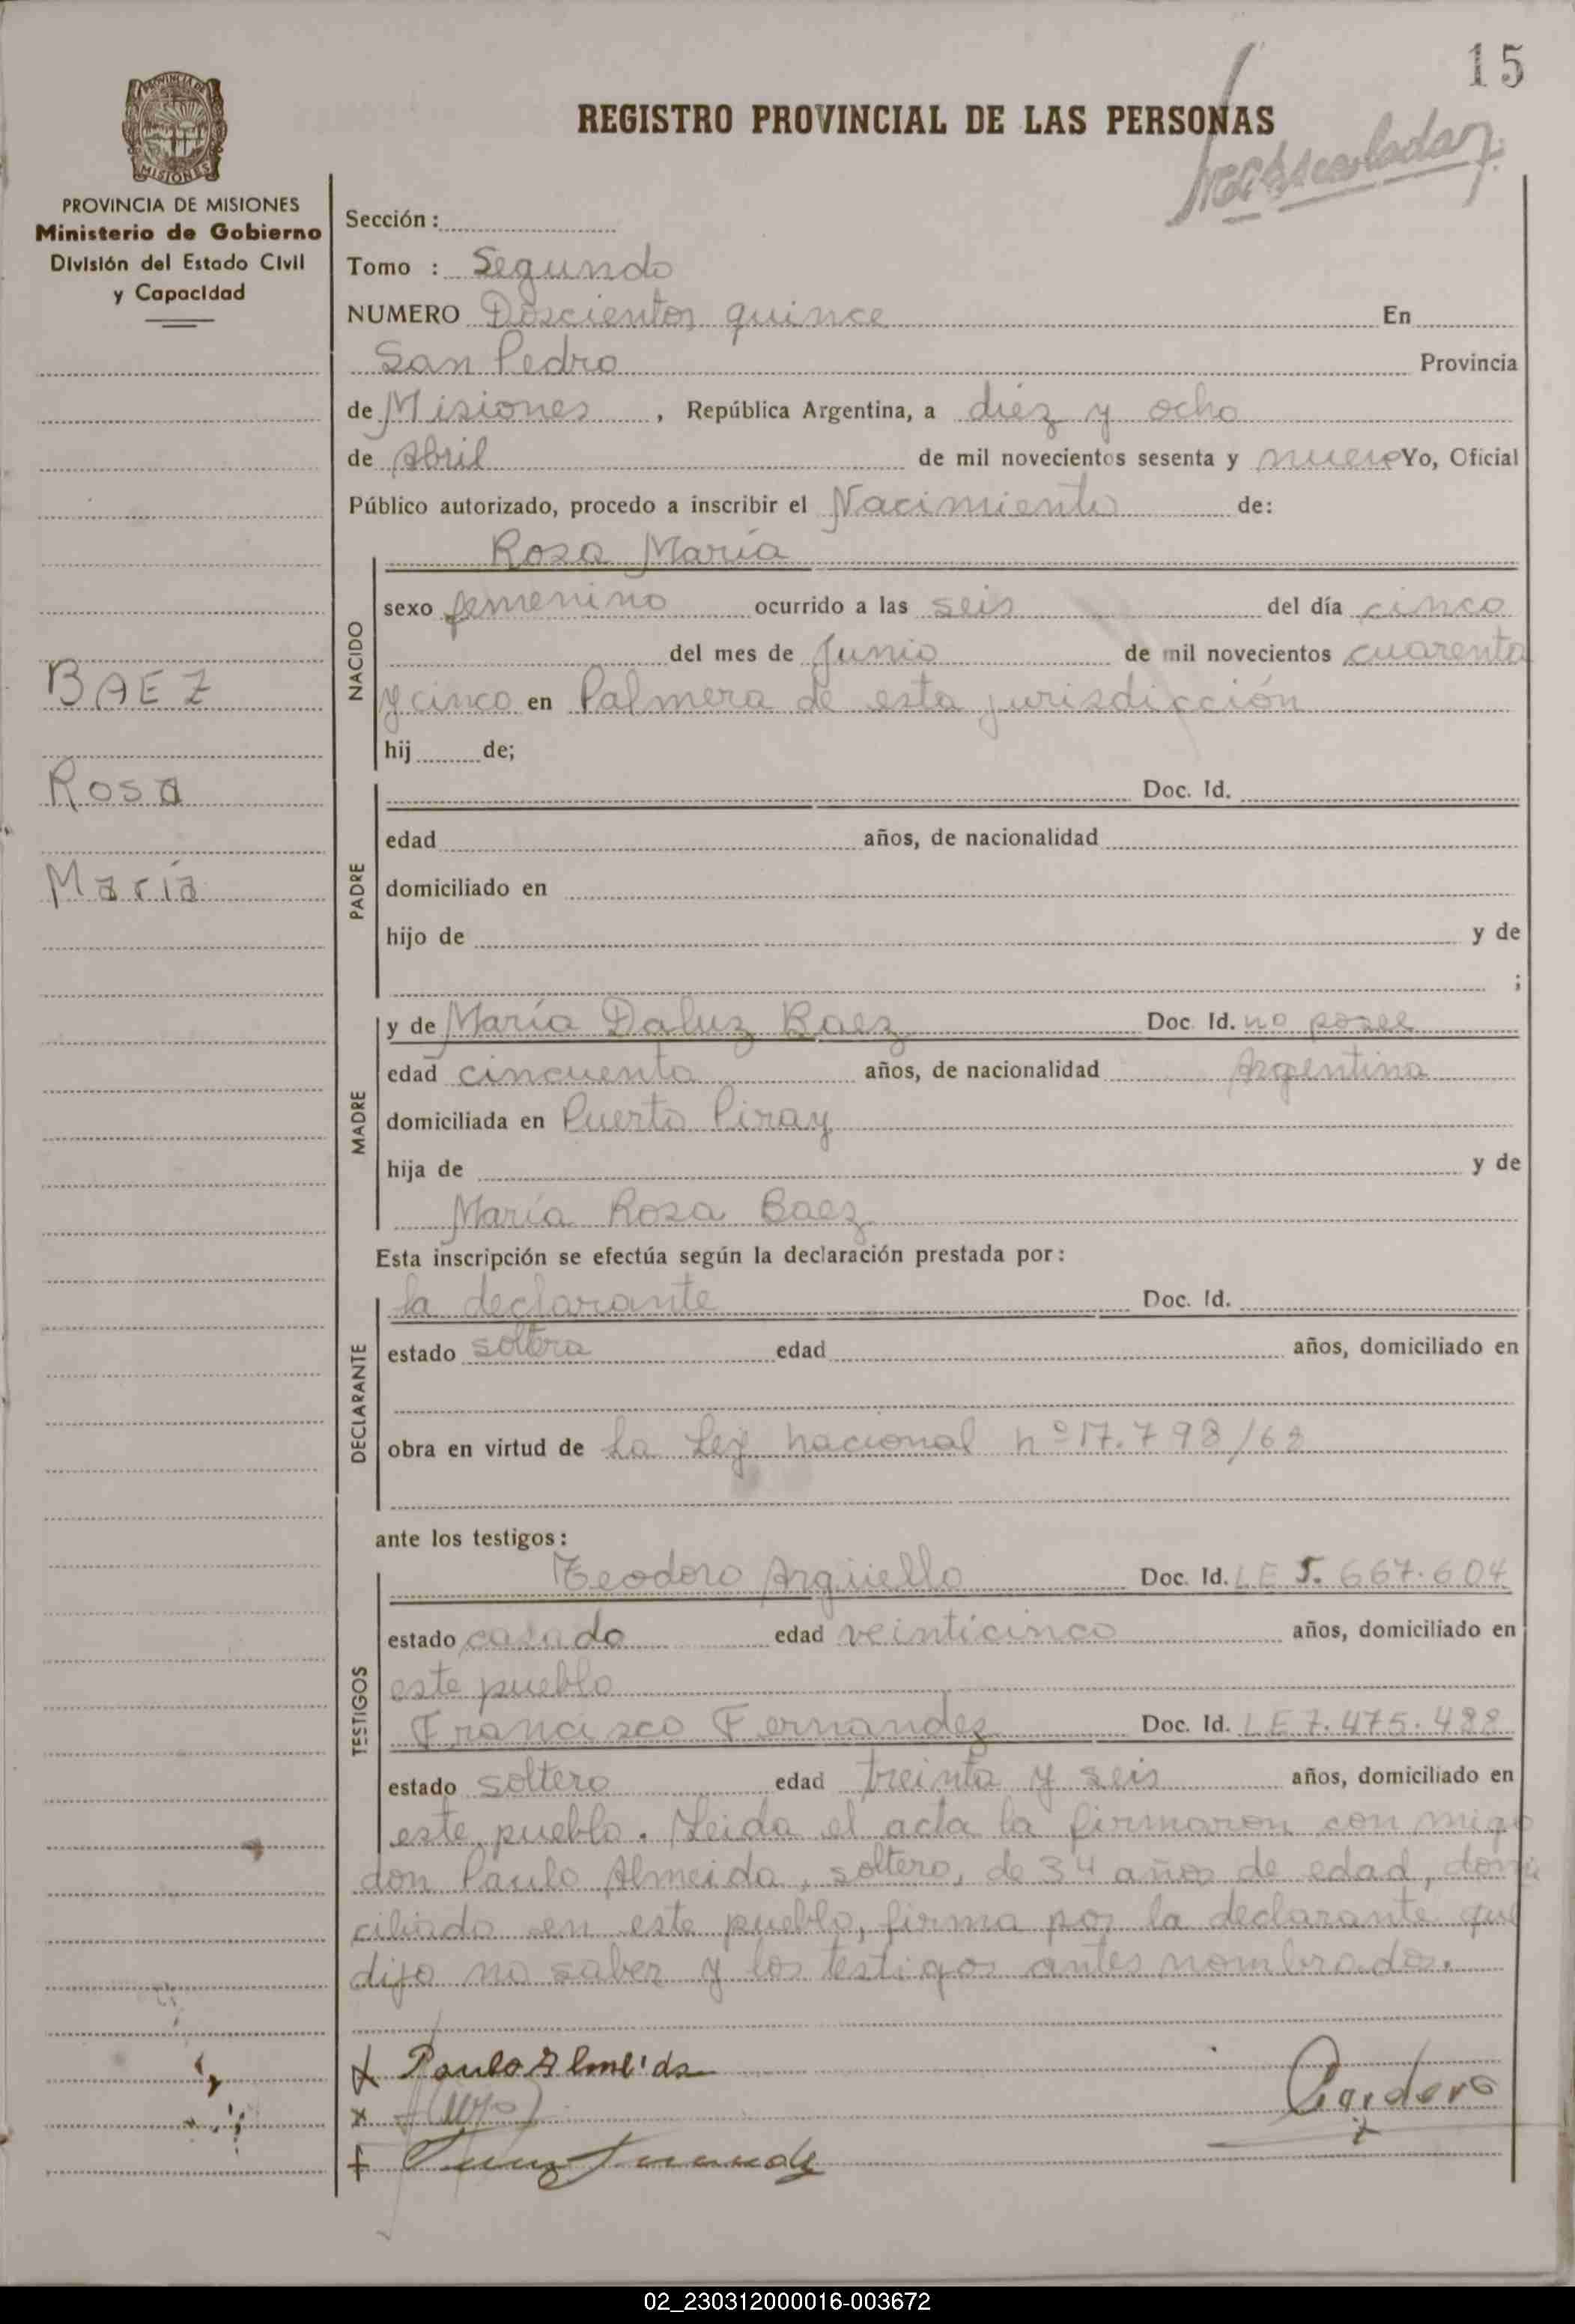 15
REGISTRO PROVINCIAL DE LAS PERSONAS
PROVINCIA DE MISIONES
MISIONES
PROVINCIA DE MISIONES
Ministerio de Gobierno
División del Estado Civil
y Capacidad
Sección :
Tomo : Segundo
NUMERO Doscientos quince En
San Pedro Provincia
de Misiones , República Argentina, a diez y ocho
de Abril de mil novecientos sesenta y nueve Yo, Oficial
Público autorizado, procedo a inscribir el Nacimiento de:
BAEZ
Rosa
María
NACIDO
Rosa María
sexo femenino ocurrido a las seis del día cinco
del mes de Junio de mil novecientos cuarenta
y cinco en Palmera de esta jurisdicción
hij de;
PADRE
Doc. Id.
edad años, de nacionalidad
domiciliado en
hijo de y de
;
MADRE
y de María Daluz Baez Doc. Id. no posee
edad cincuenta años, de nacionalidad Argentina
domiciliada en Puerto Piray
hija de y de
María Rosa Baez
Esta inscripción se efectúa según la declaración prestada por:
DECLARANTE
la declarante Doc. Id.
estado soltera edad años, domiciliado en
obra en virtud de La Ley nacional nº 17.798/68
ante los testigos:
TESTIGOS
Teodoro Argüello Doc. Id. LE 5. 667.604
estado casado edad veinticinco años, domiciliado en
este pueblo
Francisco Fernandez Doc. Id. LE 7.475.488
estado soltero edad treinta y seis años, domiciliado en
este pueblo. Leida el acta la firmaron con migo
don Paulo Almeida, soltero, de 34 años de edad, domi
ciliado en este pueblo, firma por la declarante que
dijo no saber y los testigos antes nombrados.
Paulo Almeida
Cordero
02_230312000016-003672